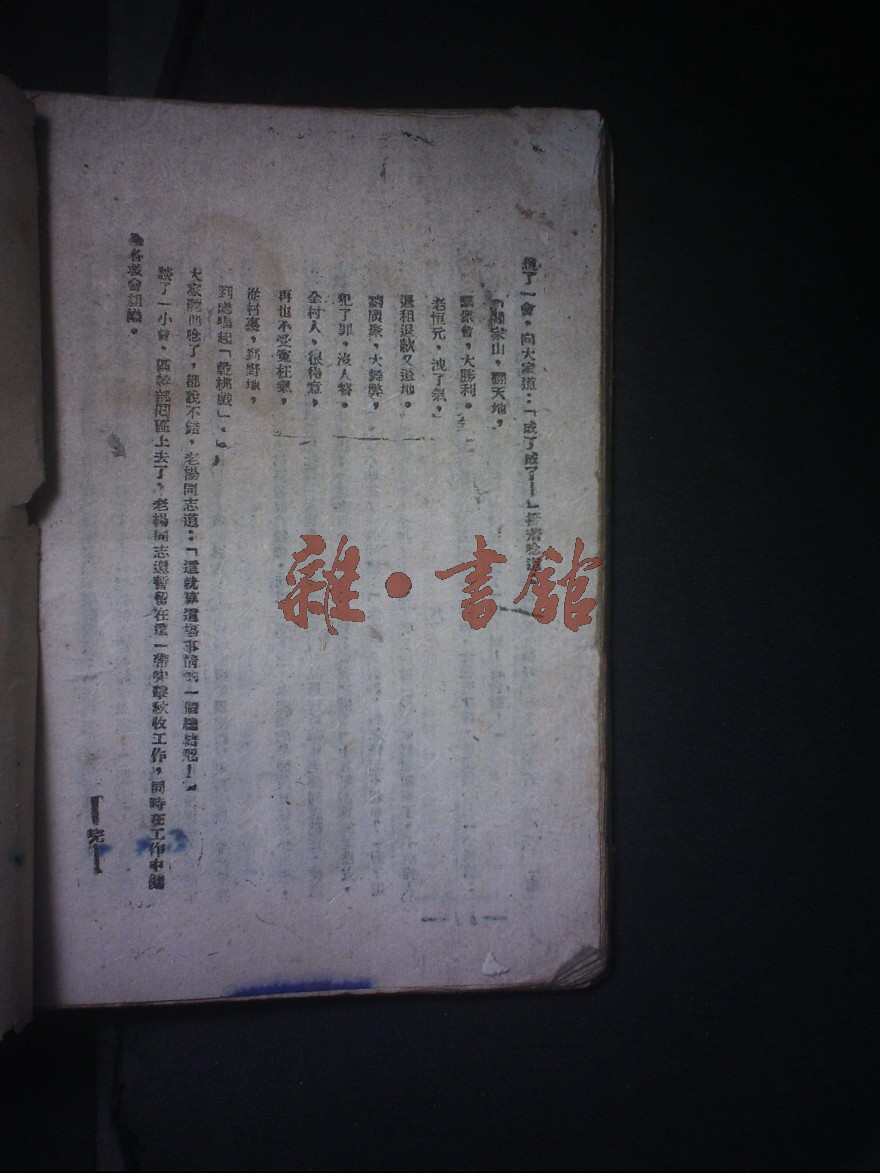 想了一會，向大家道：「成了成了！」接着唸道：
「閻家山，翻天地，
羣衆會，大勝利。
老恒元，洩了氣，
退租退款又退地。
劉廣聚，大舞弊，
犯了罪，沒人替。
全村人，很得意，
再也不受冤枉氣，
從村裏，到野地，
到處唱起「乾梆戲」。」
大家聽他唸了，都說不錯，老楊同志道：「這就算這塲事情的一個總結吧！」
談了一小會，區幹部回區上去了，老楊同志還暫留在這一帶突擊秋收工作，同時在工作中健
全各救會組織。
——完——
雜·書館